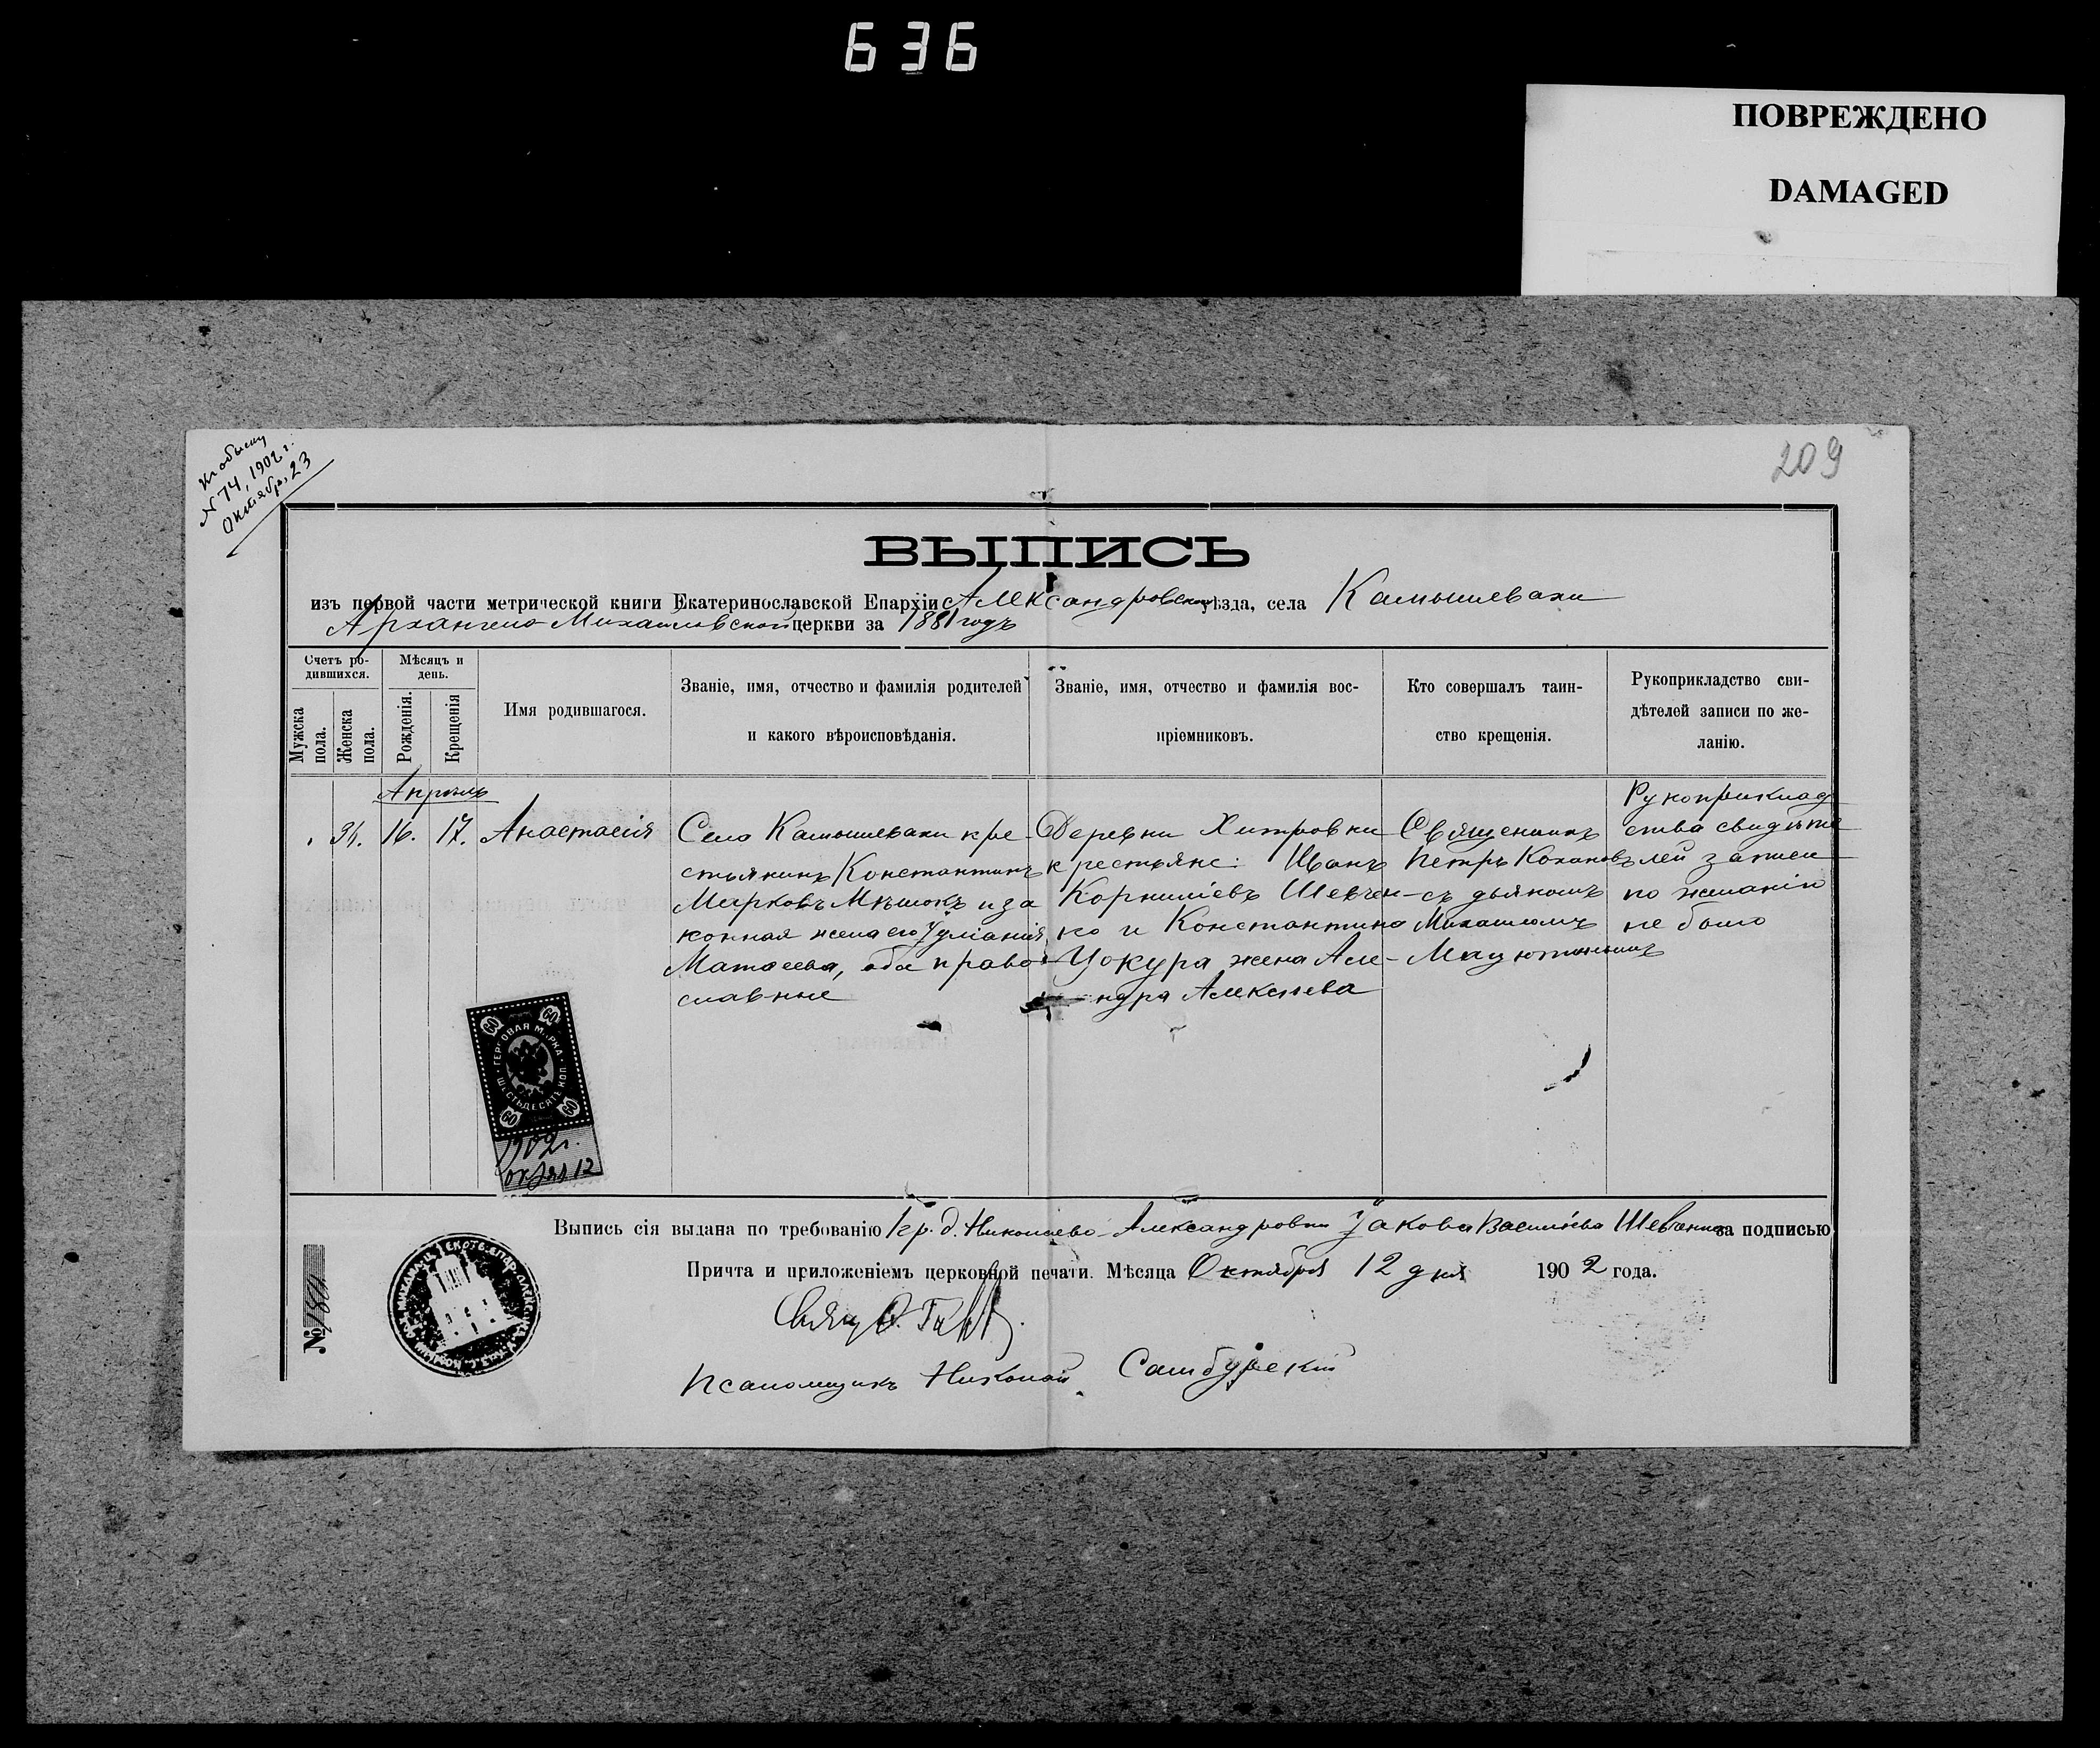 636
ПОВРЕЖДЕНО
DAMAGED
Къ обыску
№ 74, 1902 г.
Октября, 23
209
ВЫПИСЬ
изъ первой части метрической книги Екатеринославской Епархіи Александровскаго уѣзда, села Камышевахи
Архангело-Михайловской церкви за 1881 годъ
Счетъ родившихся.
Мужска пола.
Женска пола.
Мѣсяцъ и день.
Рожденія.
Крещенія
Имя родившагося.
Званіе, имя, отчество и фамилія родителей
и какого вѣроисповѣданія.
Званіе, имя, отчество и фамилія вос-
пріемниковъ.
Кто совершалъ таин-
ство крещенія.
Рукоприкладство сви-
дѣтелей записи по же-
ланію.
Апрѣль
16. 17. Анастасія
Села Камышевахи кре-
стьянинъ Константинъ
Марковъ Мѣшокъ и за
конная жена его Іуліанія
Матѳеева, оба право-
славные
Деревни Хитровки
крестьяне: Иванъ
Корниліевъ Шевчен-
ко и Константина
Цокура жена Але-
ндра Алексѣева
Священникъ
Петръ Кохановъ
съ дьякомъ
Михаиломъ
Рукоприклад
ства свидѣте
лей записи
по желанію
не было
60 60
ГЕРБОВАЯ МАРКА
ШЕСТЬДЕСЯТЪ КОП.
60 60
1902 г.
окт. 12
Выпись сія выдана по требованію кр. д. Николаево-Александровки Іакова Васильева Шевченка за подписью
Причта и приложеніемъ церковной печати. Мѣсяца Октября 12 дня 1902 года.
№
Свящ.
Псаломщикъ Николай Самбурскій